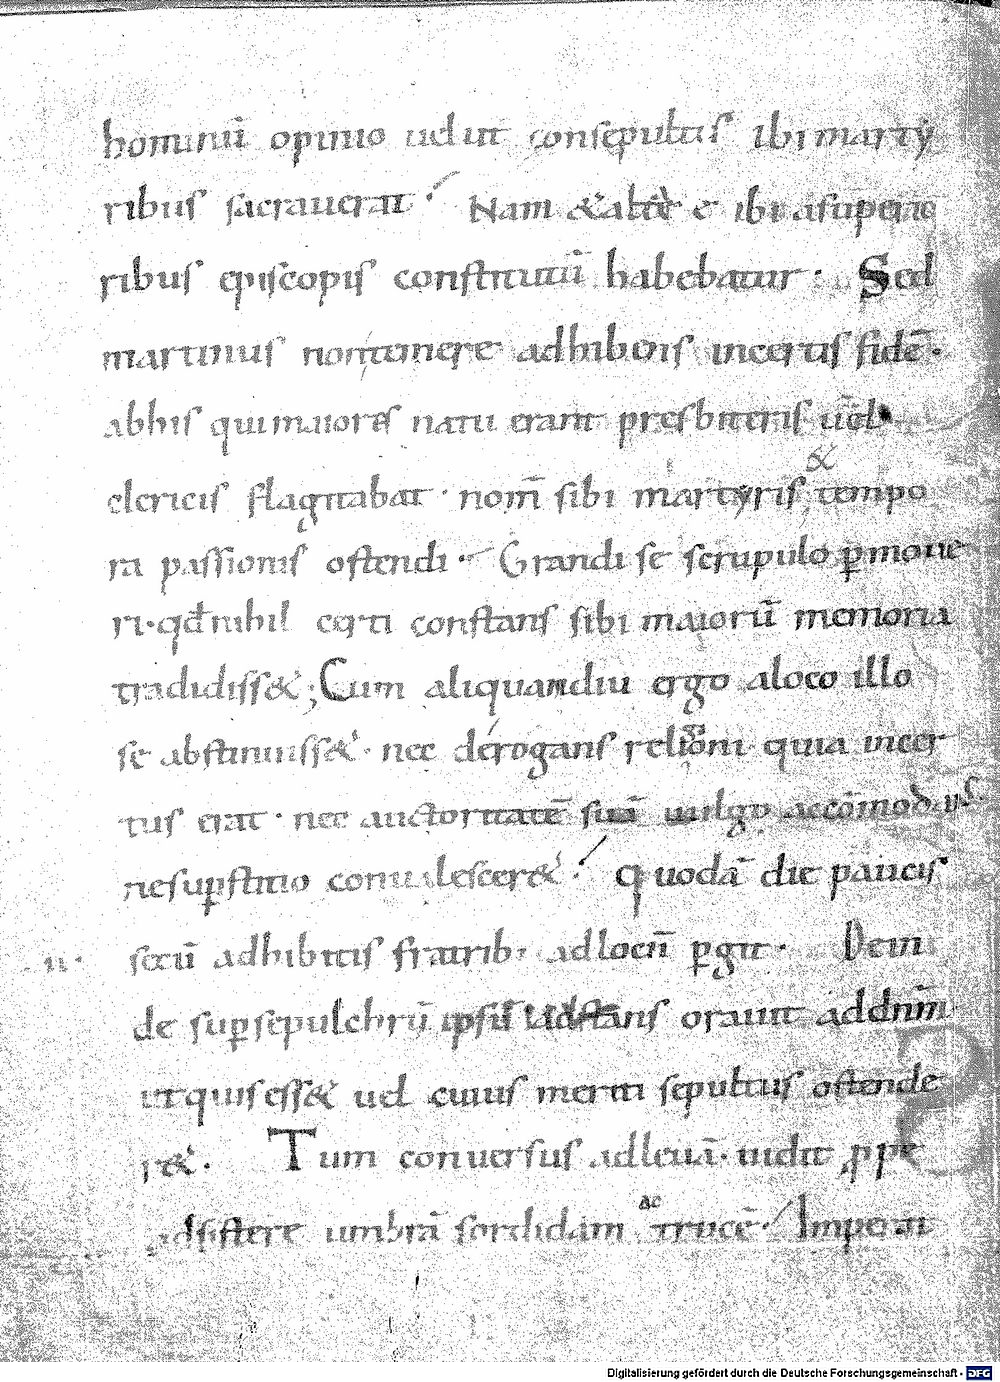 hominū opinio uelut consepultis ibi marty
ribus sacrauerat. Nam & ibi a superio
ribus episcopis constitutū habebatur. Sed
martinus non temere adhibens incertis fidē.
ab his qui maiores natu erant presbiteris uel
clericis flagitabat. nom̄ sibi martyris & tempo
ra passionis ostendi. Grandi se scrupulo ꝑmoue
ri. qđ nihil certi constans sibi maiorū memoria
tradidiss&; Cum aliquandiu ergo a loco illo
se abstinuiss&. nec derogans religioni quia incer
tus erat. nec auctoritatē suā uulgo accōmodans
ne suꝑstitio conualescer&. quodā die paucis
secū adhibitis fratrib; ad locū ꝑgit. Dein
de suꝑ sepulchrū ipsū adstans orauit ad dn̄m
ut quis ess& uel cuius meriti sepultus ostende
r&. Tum conuersus ad leuā. uidit ꝓpe
adsistere umbrā sordidam ac trucē. Imperat
·n·
Digitalisierung gefördert durch die Deutsche Forschungsgemeinschaft - DFG